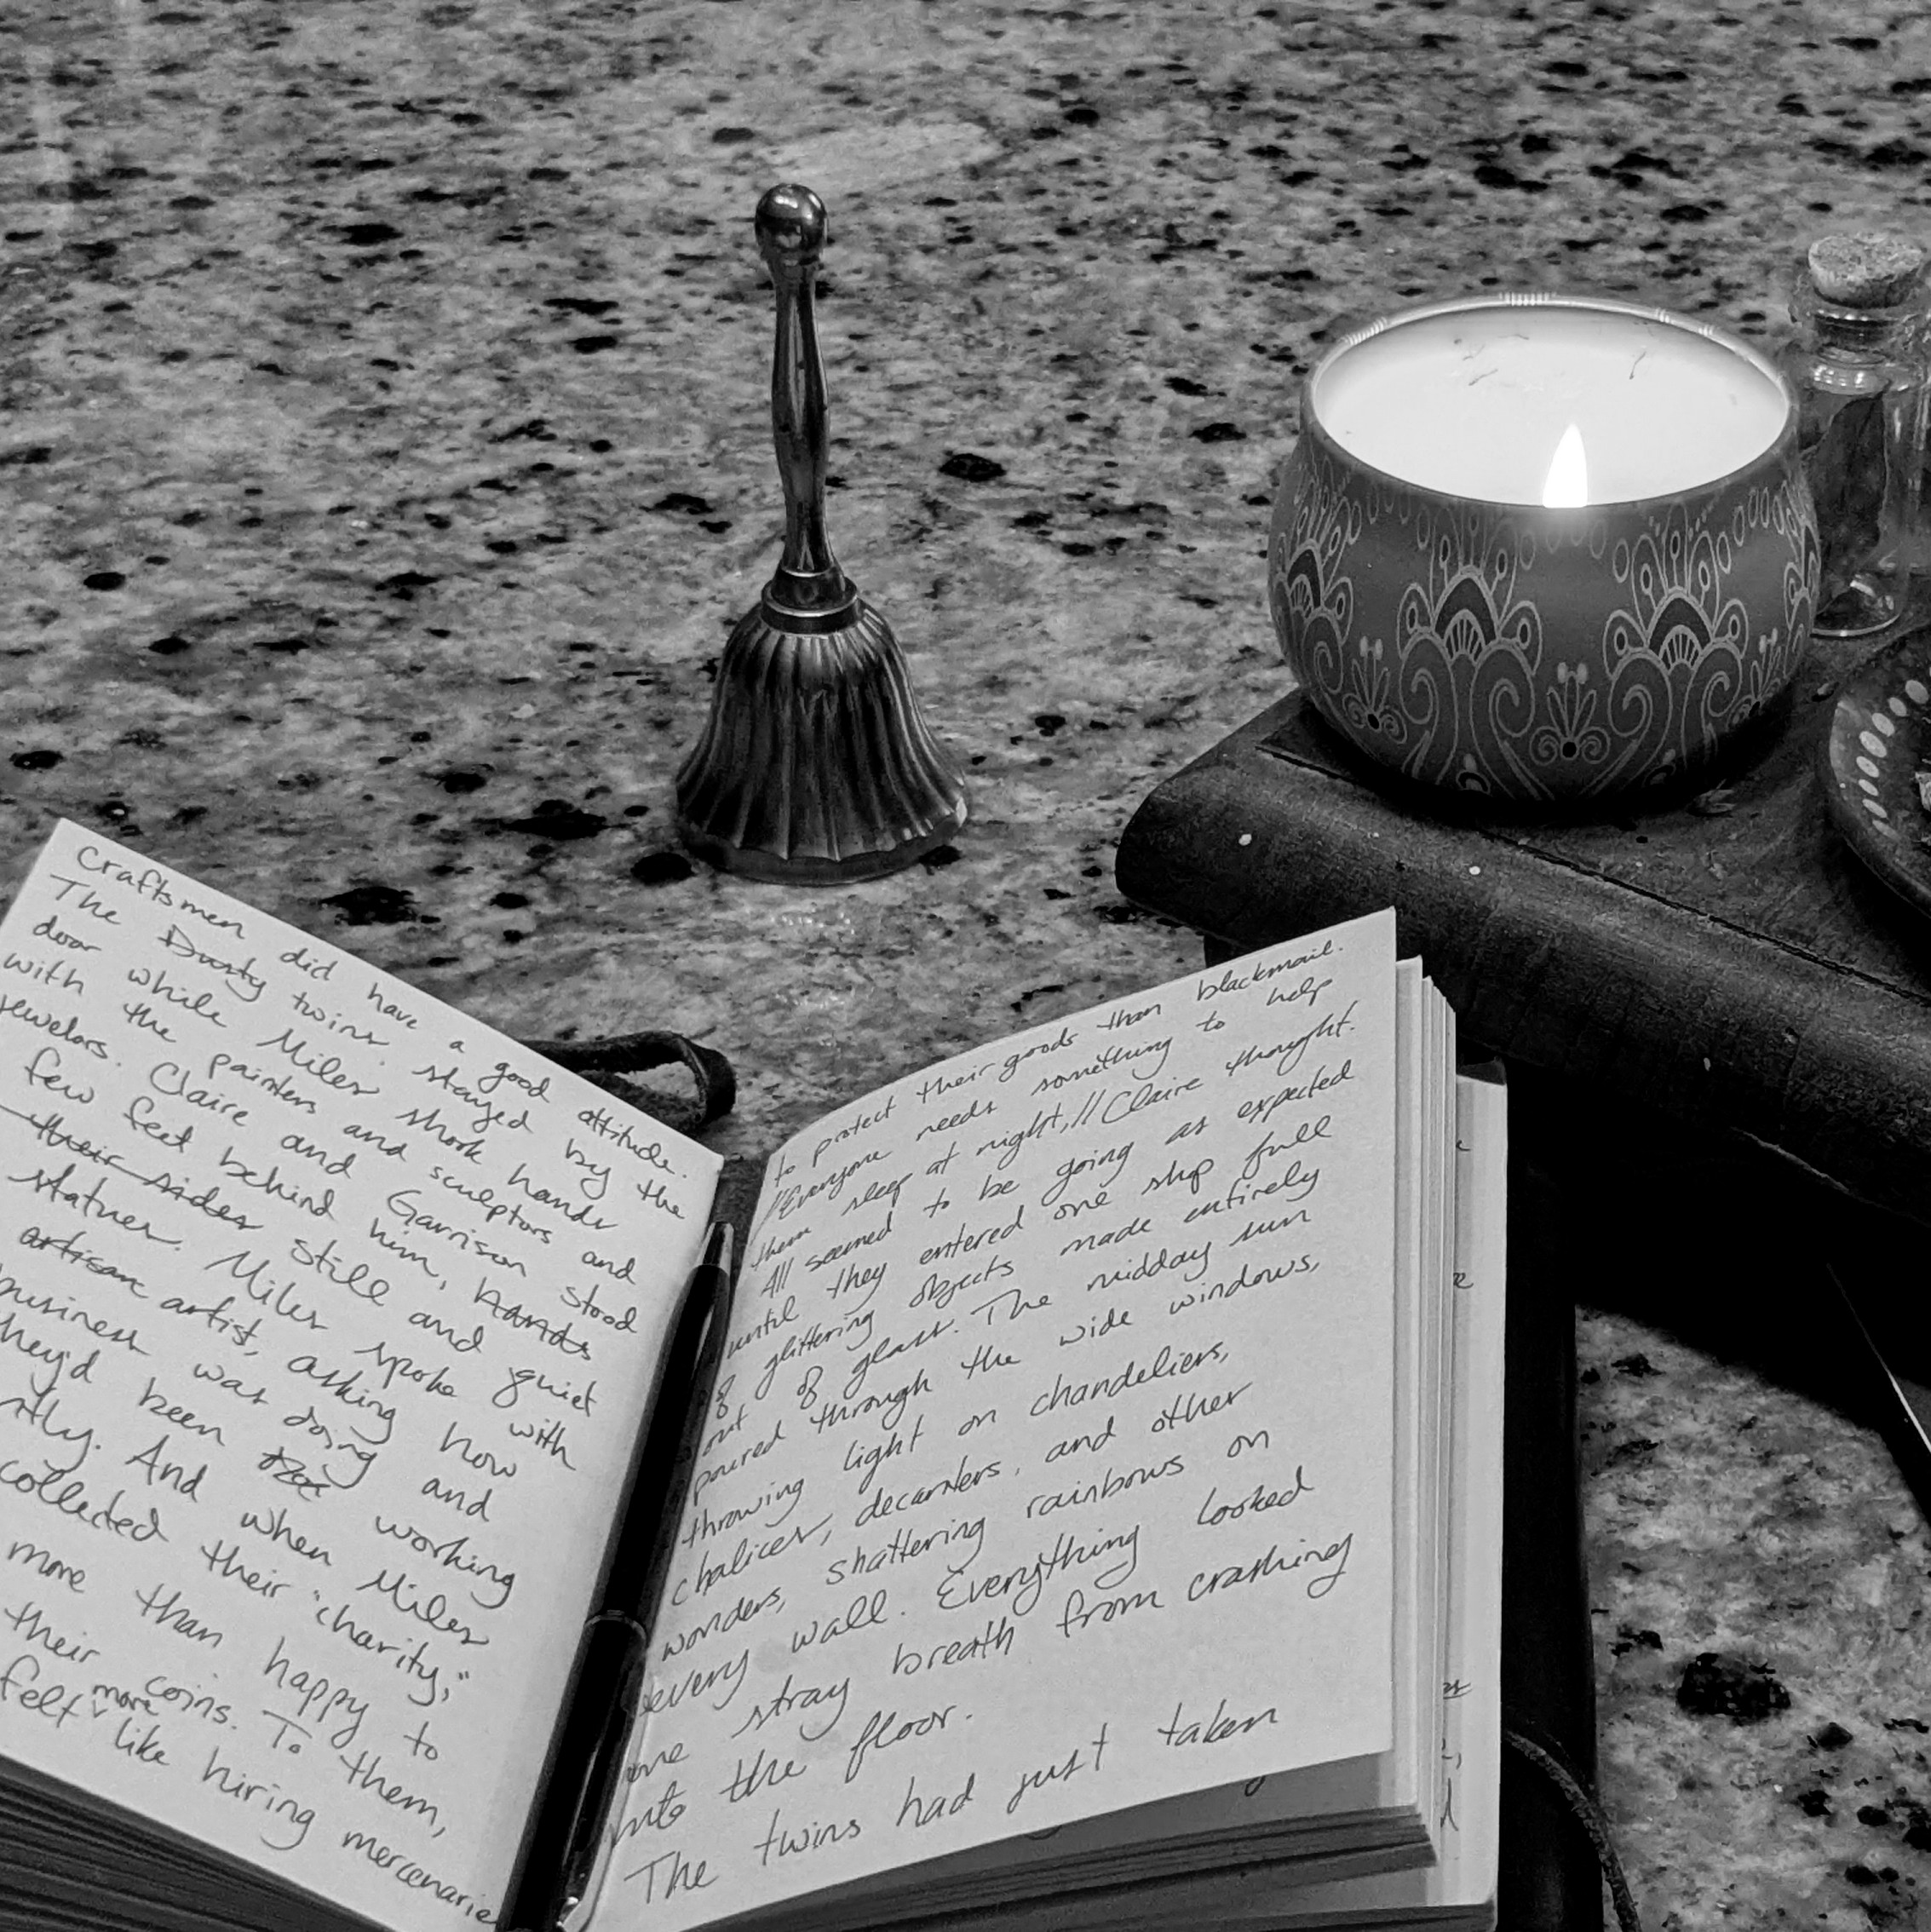 Craftsmen did have a good attitude.
The Dusty twins stayed by the
door while Miles shook hands
with the painters and sculptors and
jewelers. Claire and Garrison stood
few feet behind him, hands
their sides still and quiet
statues. Miles spoke with
artisan artist, asking how
business was doing and
they'd been working
And when Miles
collected their "charity,"
more than happy to
their coins. To them,
felt more like hiring mercenaries
to protect their goods than blackmail.
//Everyone needs something to help
them sleep at night,// Claire thought.
All seemed to be going as expected
until they entered one shop full
of glittering objects made entirely
out of glass. The midday sun
poured through the wide windows,
throwing light on chandeliers,
chalices, decanters, and other
wonders, shattering rainbows on
every wall. Everything looked
one stray breath from crashing
into the floor.
The twins had just taken